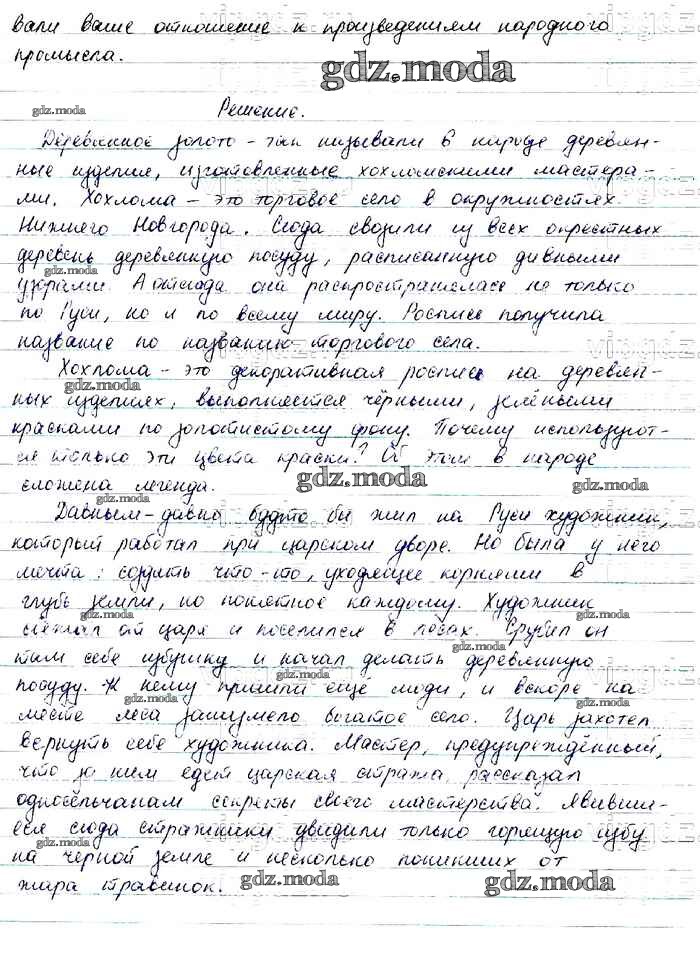 вали ваше отношение к произведениям народного
промысла.
gdz.moda
Решение.
gdz.moda
Деревянное золото - так называли в народе деревян-
ные изделия, изготовленные хохломскими мастера-
ми. Хохлома - это торговое село в окружностях
Нижнего Новгорода. Сюда свозили из всех окрестных
деревень деревянную посуду, расписанную дивными
gdz.moda
узорами. А отсюда она распространялась не только
по Руси, но и по всему миру. Роспись получила
название по названию торгового села.
Хохлома - это декоративная роспись на деревян-
gdz.moda
ных изделиях, выполняется чёрными, зелёными
красками по золотистому фону. Почему используют-
ся только эти цвета краски? Об этом в народе
gdz.moda
gdz.moda
сложена легенда.
gdz.moda
Давным-давно будто бы жил на Руси художник,
который работал при царском дворе. Но была у него
мечта: создать что-то, уходящее корнями в
глубь земли, но понятное каждому. Художник
gdz.moda
gdz.moda
сбежал от царя и поселился в лесах. Срубил он
gdz.moda
там себе избушку и начал делать деревянную
посуду. К нему пришли ещё люди, и вскоре на
gdz.moda
gdz.moda
месте леса зашумело богатое село. Царь захотел
вернуть себе художника. Мастер, предупреждённый,
что за ним едет царская стража, рассказал
односельчанам секреты своего мастерства. Явивши-
еся сюда стражники увидили только горящую избу
gdz.moda
gdz.moda
на черной земле и несколько поникших от
жара травинок.
gdz.moda
gdz.moda